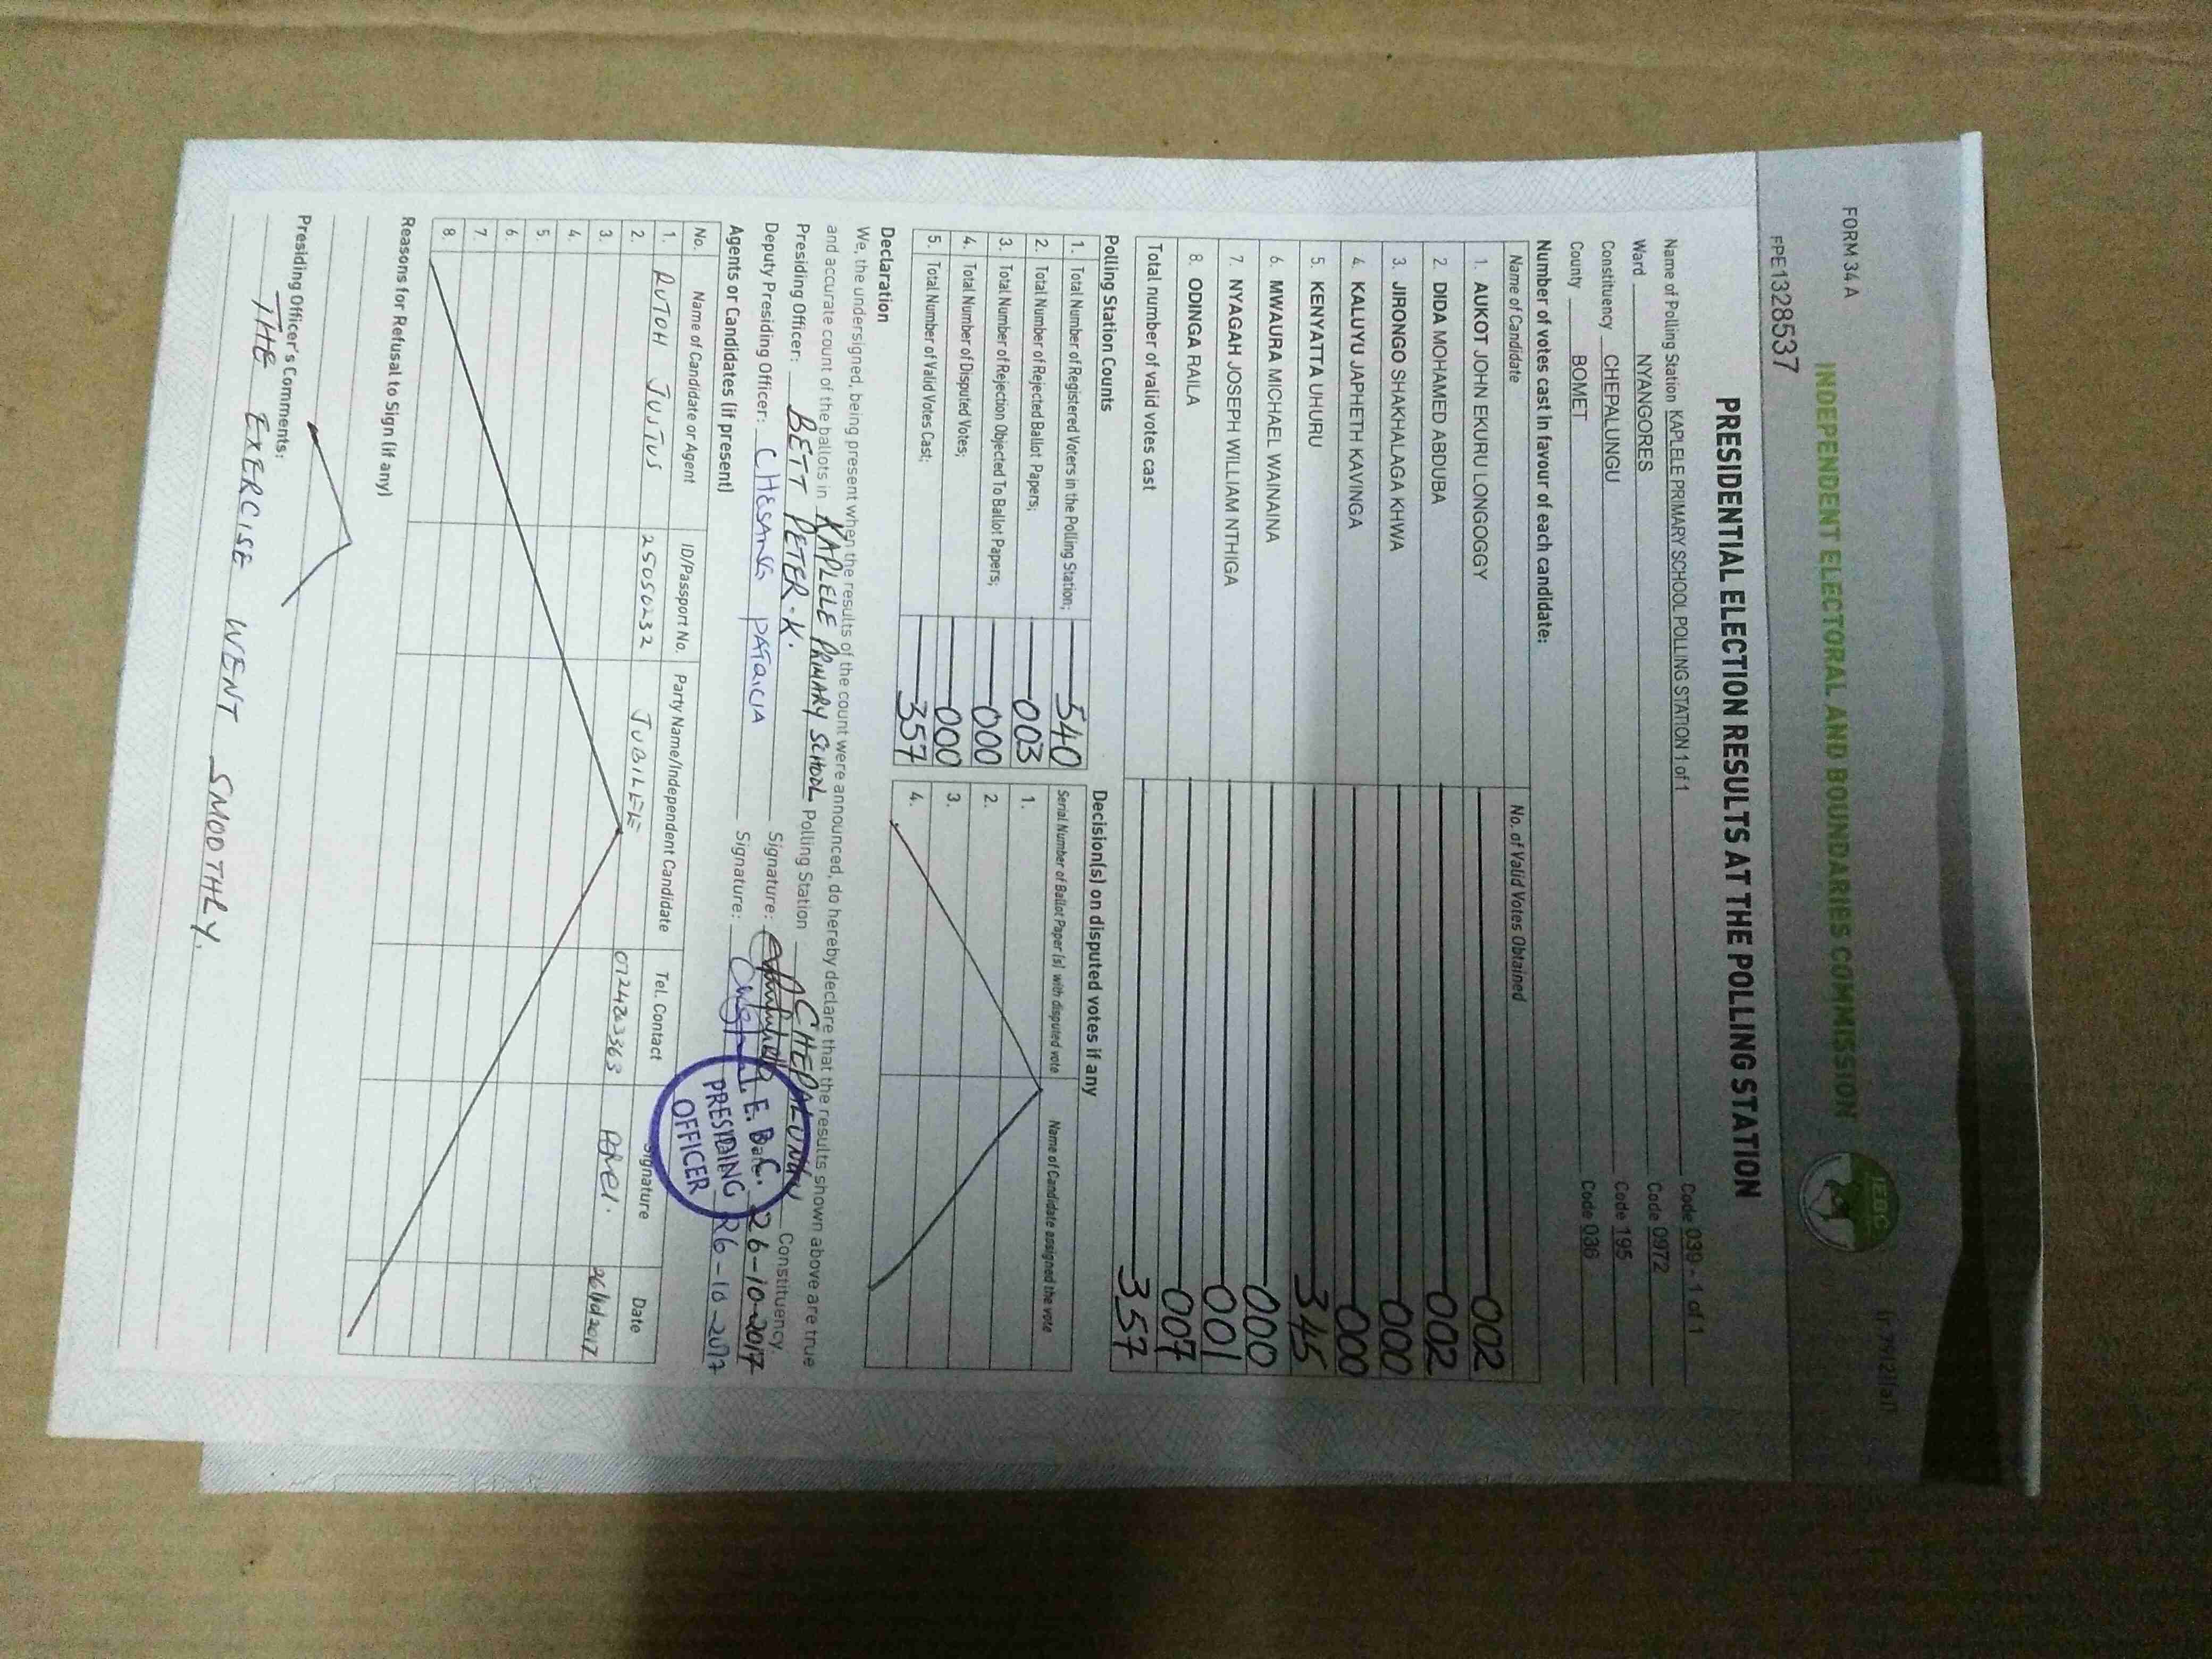 FORM 34 A
INDEPENDENT ELECTORAL AND BOUNDARIES COMMISSION
IEBC
FPE1328537
PRESIDENTIAL ELECTION RESULTS AT THE POLLING STATION
Name of Polling Station KAPLELE PRIMARY SCHOOL POLLING STATION 1 of 1 Code 039 - 1 of 1
Ward NYANGORES Code 0972
Constituency CHEPALUNGU Code 195
County BOMET Code 036
Number of votes cast in favour of each candidate:
Name of Candidate No. of Valid Votes Obtained
1. AUKOT JOHN EKURU LONGOGGY 002
2. DIDA MOHAMED ABDUBA 002
3. JIRONGO SHAKHALAGA KHWA 000
4. KALUYU JAPHETH KAVINGA 000
5. KENYATTA UHURU 345
6. MWAURA MICHAEL WAINAINA 000
7. NYAGAH JOSEPH WILLIAM NTHIGA 001
8. ODINGA RAILA 007
Total number of valid votes cast 357
Polling Station Counts
1. Total Number of Registered Voters in the Polling Station; 540
2. Total Number of Rejected Ballot Papers; 003
3. Total Number of Rejection Objected To Ballot Papers; 000
4. Total Number of Disputed Votes; 000
5. Total Number of Valid Votes Cast; 357
Decision(s) on disputed votes if any
Serial Number of Ballot Paper (s) with disputed vote Name of Candidate assigned the vote
1.
2.
3.
4.
Declaration
We, the undersigned, being present when the results of the count were announced, do hereby declare that the results shown above are true
and accurate count of the ballots in KAPLELE PRIMARY SCHOOL Polling Station CHEPALUNGU Constituency.
Presiding Officer: BETT PETER . K. Signature: Date: 26-10-2017
Deputy Presiding Officer: CHESANG PATRICIA Signature: 26-10-2017
I. E. B. C.
PRESIDING
OFFICER
Agents or Candidates (if present)
No. Name of Candidate or Agent ID/Passport No. Party Name/Independent Candidate Tel. Contact Signature Date
1. RUTOH JUSTUS 25050232 JUBILEE 26/10/2017
2.
3.
4.
5.
6.
7.
8.
Reasons for Refusal to Sign (if any)
Presiding Officer's Comments:
THE EXERCISE WENT SMOOTHLY.